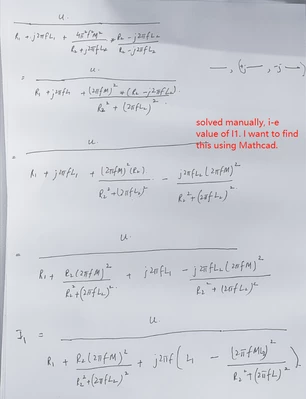 u
R₁ + j2πfL₁ + 4π²f²M² / R₂ + j2πfL₂ * R₂ - j2πfL₂ / R₂ - j2πfL₂
= u
R₁ + j2πfL₁ + (2πfM)² * (R₂ - j2πfL₂) / R₂² + (2πfL₂)²
solved manually, i-e
value of I1. I want to find
this using Mathcad.
= u
R₁ + j2πfL₁ + (2πfM)²(R₂) / R₂² + (2πfL₂)² - j2πfL₂(2πfM)² / R₂² + (2πfL₂)²
= u
R₁ + R₂(2πfM)² / R₂² + (2πfL₂)² + j2πfL₁ - j2πfL₂(2πfM)² / R₂² + (2πfL₂)²
I₁ = u
R₁ + R₂(2πfM)² / R₂² + (2πfL₂)² + j2πf(L₁ - (2πfM)² / R₂² + (2πfL)²)